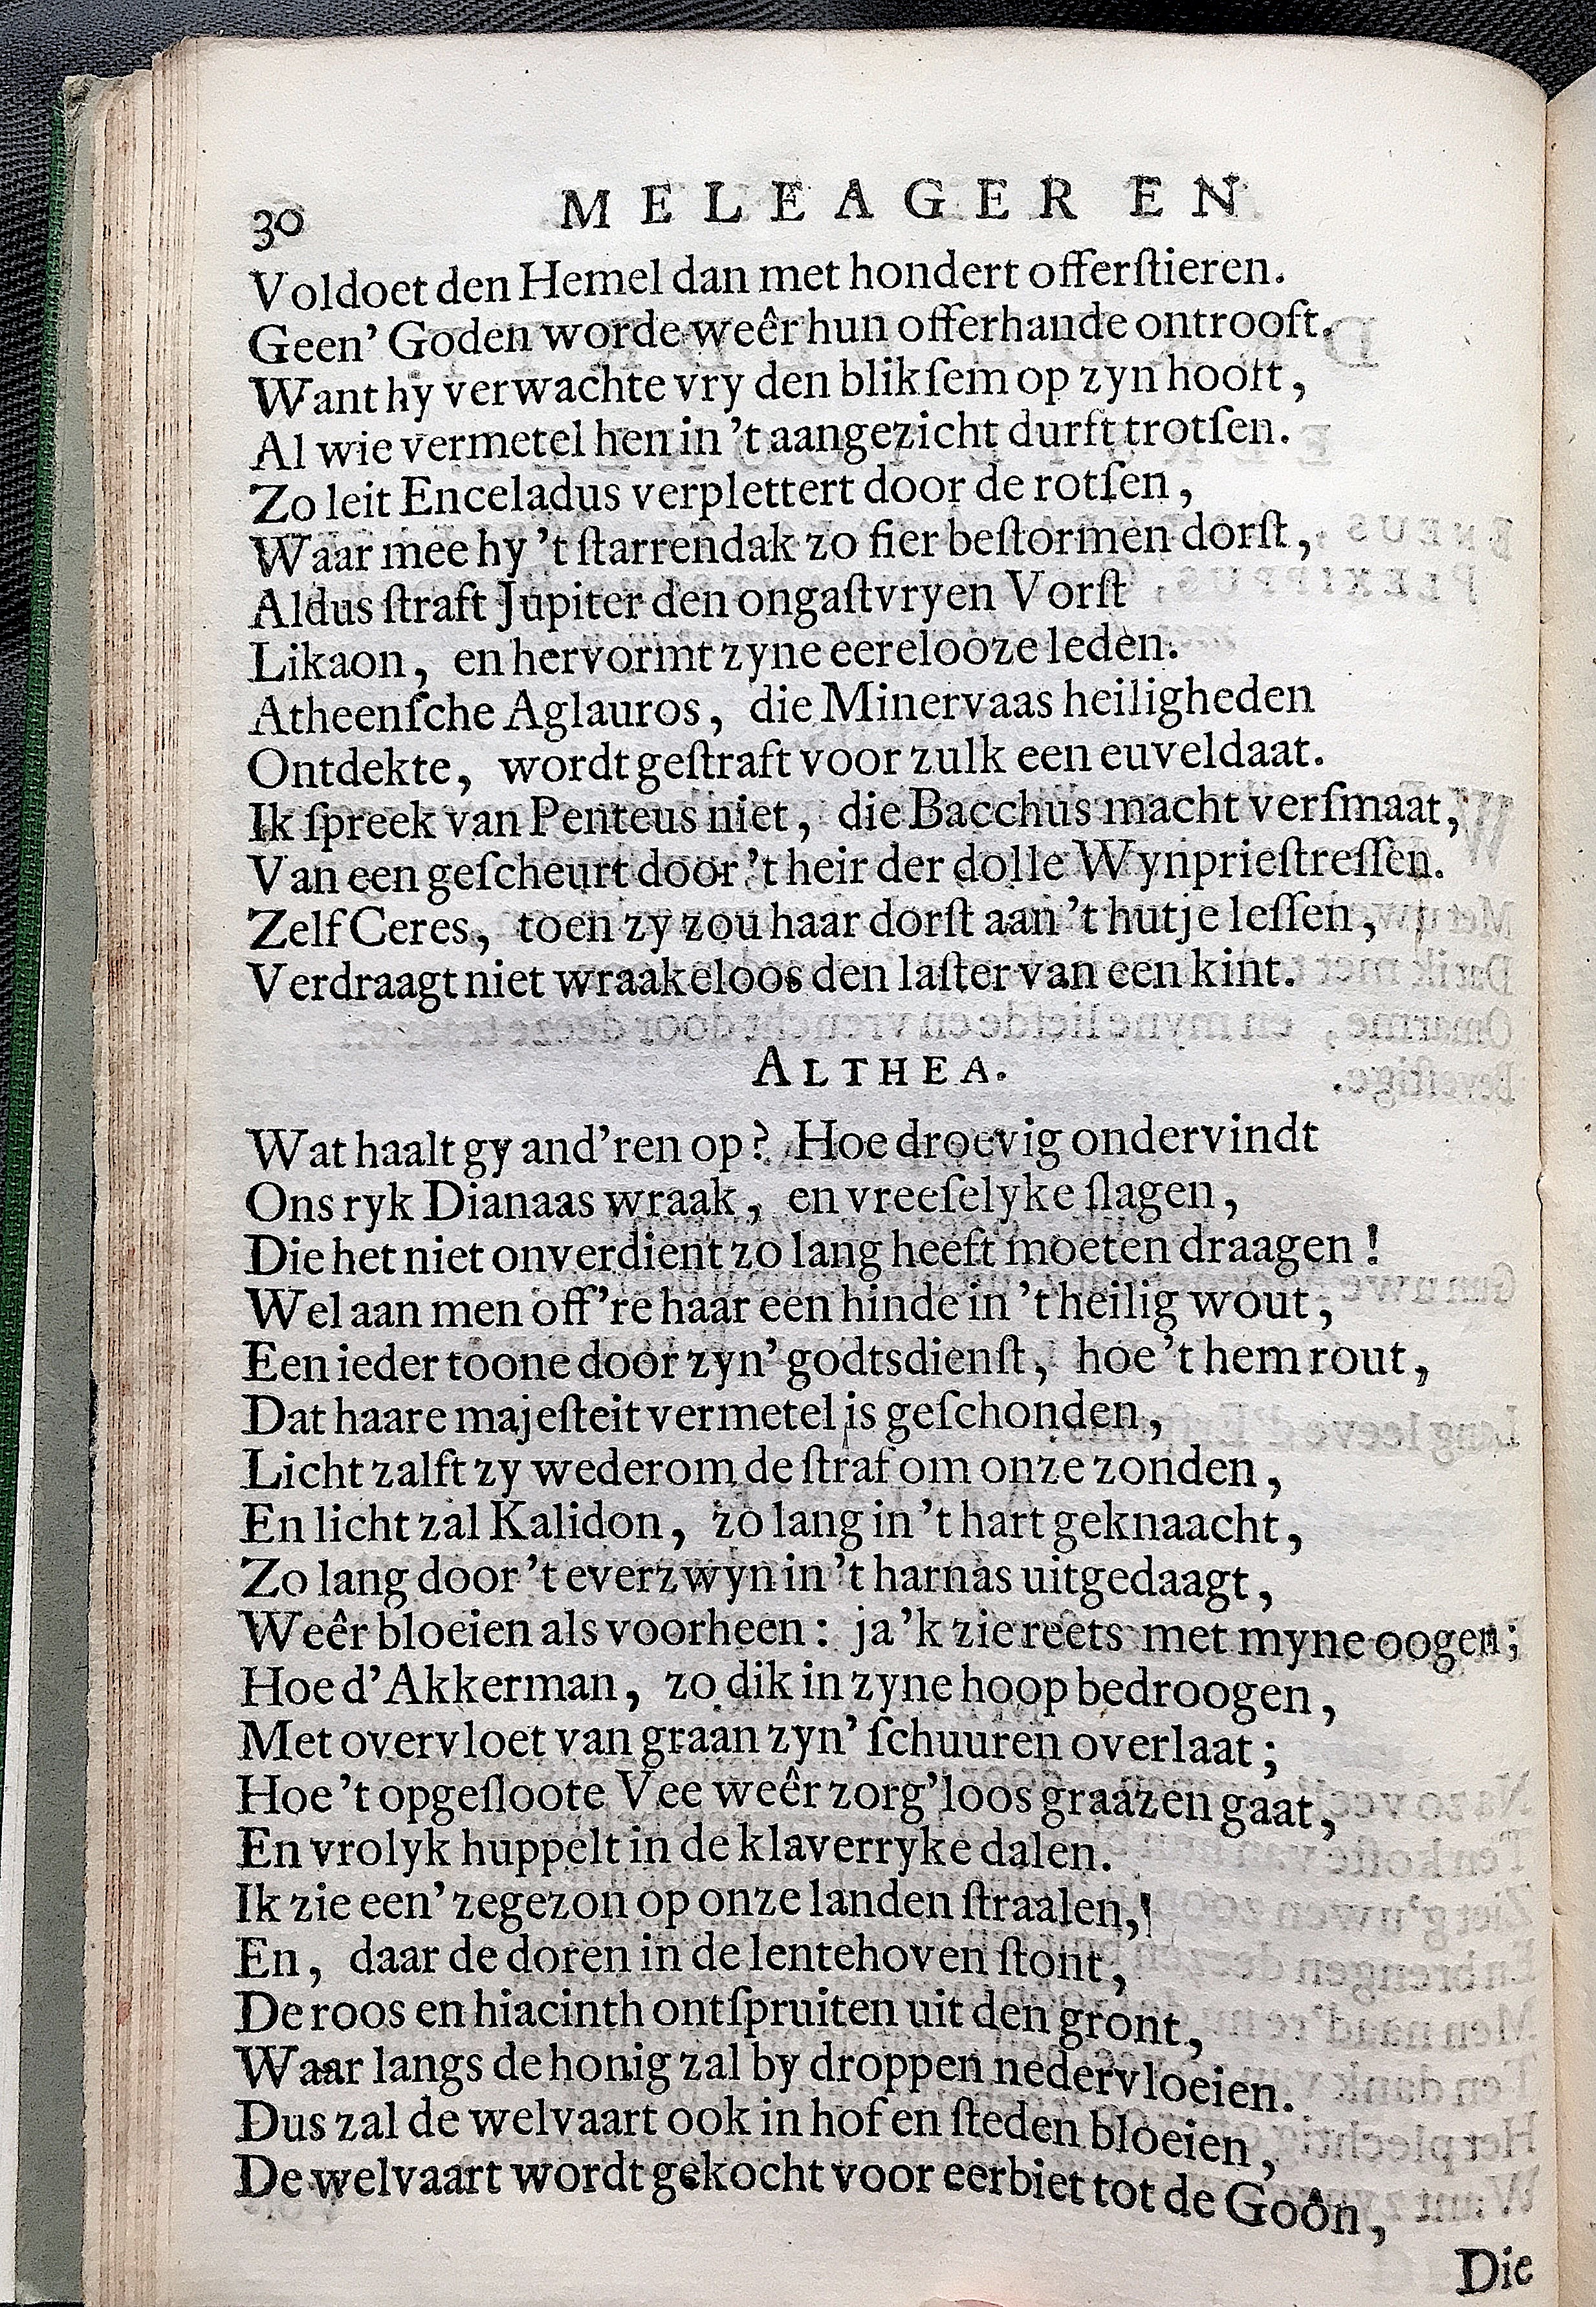 30 MELEAGER EN
Voldoet den Hemel dan met hondert offerſtieren.
Geen' Goden worde weêr hun offerhande ontrooft.
Want hy verwachte vry den blikſem op zyn hooft,
Al wie vermetel hen in 't aangezicht durft trotſen.
Zo leit Enceladus verplettert door de rotſen,
Waar mee hy 't ſtarrendak zo fier beſtormen dorſt,
Aldus ſtraft Jupiter den ongaſtvryen Vorſt
Likaon, en hervormt zyne eerelooze leden.
Atheenſche Aglauros, die Minervaas heiligheden
Ontdekte, wordt geſtraft voor zulk een euveldaat.
Ik ſpreek van Penteus niet, die Bacchus macht verſmaat,
Van een geſcheurt door 't heir der dolle Wynprieſtreſſen.
Zelf Ceres, toen zy zou haar dorſt aan 't hutje leſſen,
Verdraagt niet wraakeloos den laſter van een kint.
ALTHEA.
Wat haalt gy and'ren op? Hoe droevig ondervindt
Ons ryk Dianaas wraak, en vreeſelyke ſlagen,
Die het niet onverdient zo lang heeft moeten draagen!
Wel aan men off're haar een hinde in 't heilig wout,
Een ieder toone door zyn' godtsdienſt, hoe 't hem rout,
Dat haare majeſteit vermetel is geſchonden,
Licht zalft zy wederom de ſtraf om onze zonden,
En licht zal Kalidon, zo lang in 't hart geknaacht,
Zo lang door 't everzwyn in 't harnas uitgedaagt,
Weêr bloeien als voorheen: ja 'k zie reets met myne oogen;
Hoe d'Akkerman, zo dik in zyne hoop bedroogen,
Met overvloet van graan zyn' ſchuuren overlaat;
Hoe 't opgeſloote Vee weêr zorg'loos graazen gaat,
En vrolyk huppelt in de klaverryke dalen.
Ik zie een' zegezon op onze landen ſtraalen,
En, daar de doren in de lentehoven ſtont,
De roos en hiacinth ontſpruiten uit den gront,
Waar langs de honig zal by droppen nedervloeien.
Dus zal de welvaart ook in hof en ſteden bloeien,
De welvaart wordt gekocht voor eerbiet tot de Goôn,
Die